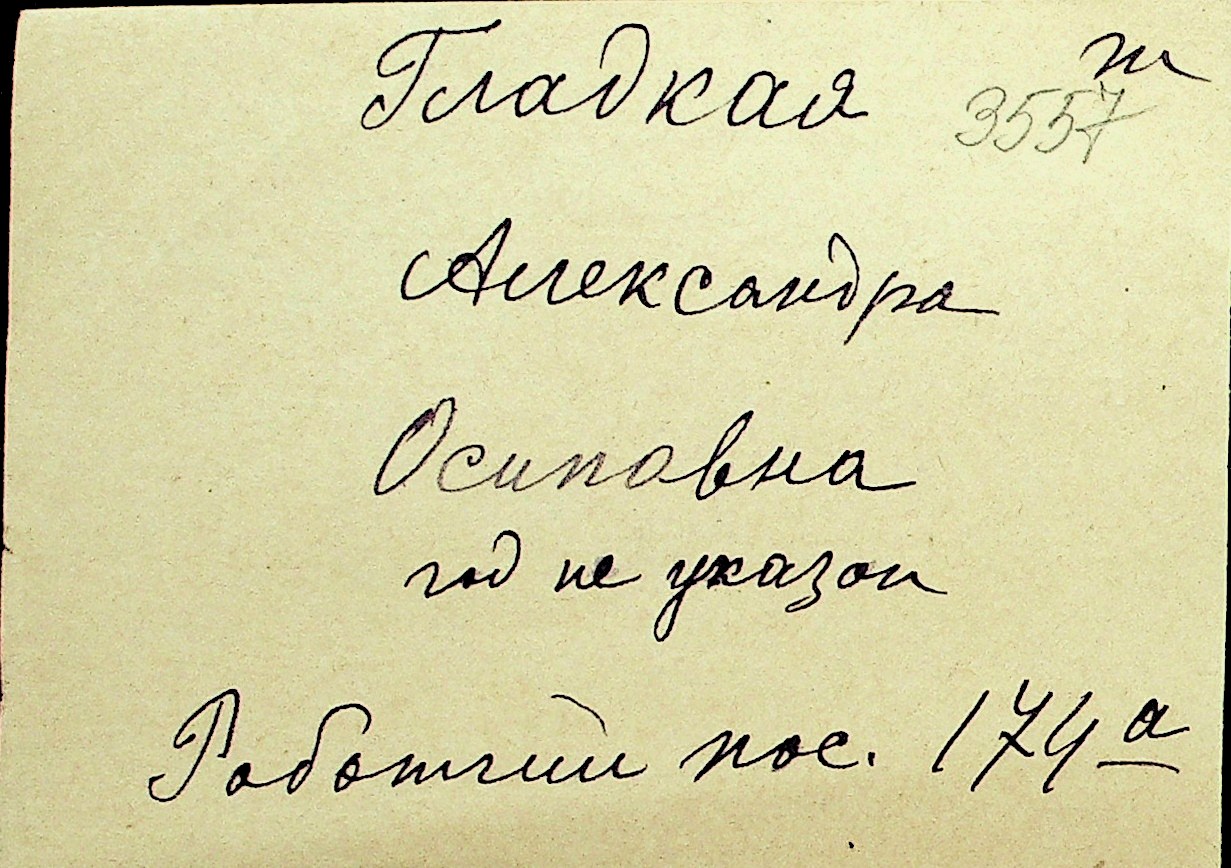 Гладкая т
3557
Александра
Осиповна
год не указан
Рабочий пос. 174а